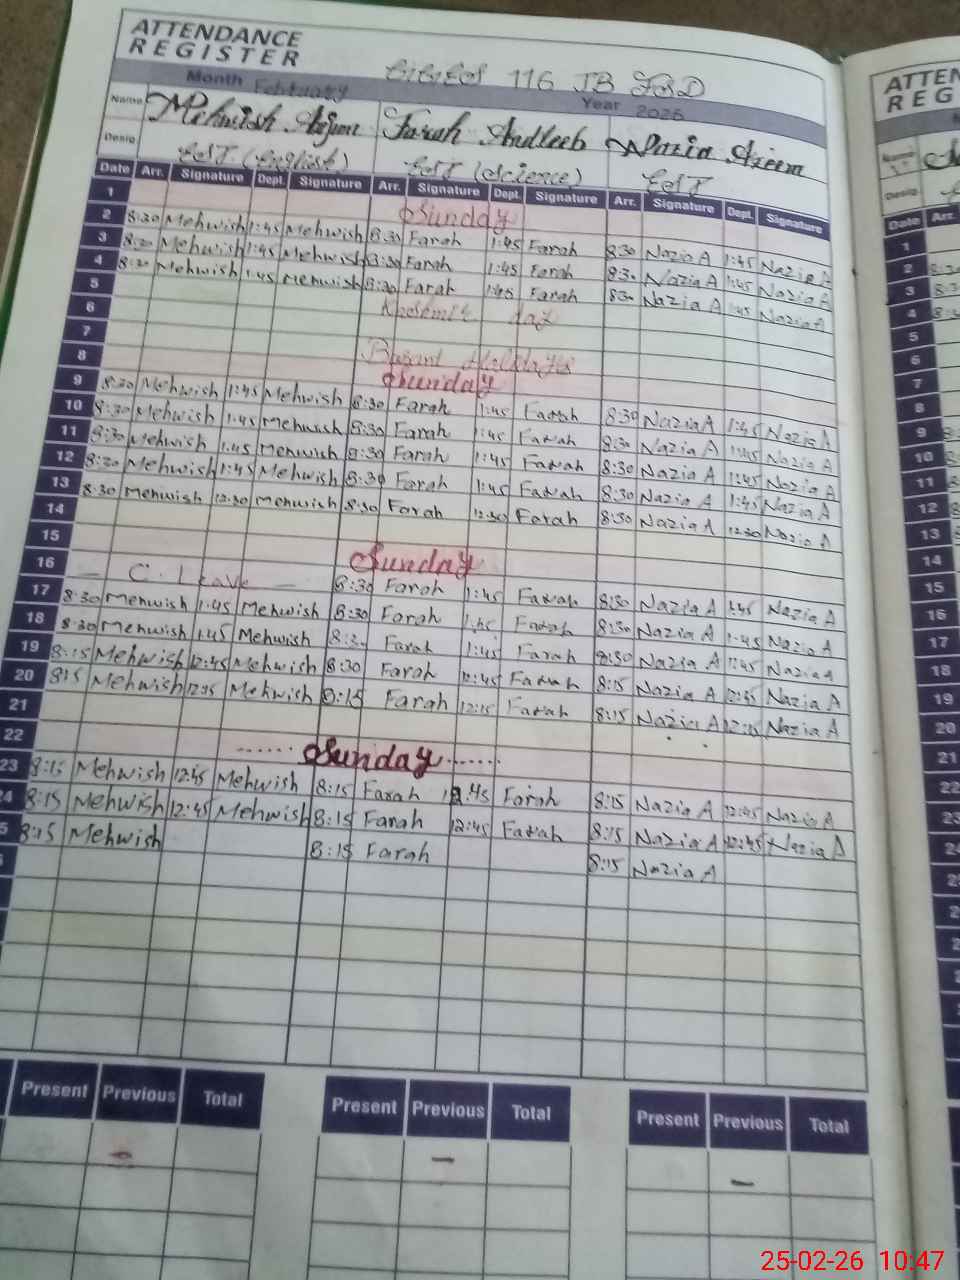 ATTENDANCE
REGISTER
116 JB
Month February Year 2026
Name Mehwish Anjum Farah Andleeb Nazia Azeem
Desig EST (English) EST (Science) EST
Date Arr. Signature Dept. Signature Arr. Signature Dept. Signature Arr. Signature Dept. Signature
1 Sunday
2 8:30 Mehwish 1:45 Mehwish 8:30 Farah 1:45 Farah 8:30 Nazia A 1:45 Nazia A
3 8:30 Mehwish 1:45 Mehwish 8:30 Farah 1:45 Farah 8:30 Nazia A 1:45 Nazia A
4 8:30 Mehwish 1:45 Mehwish 8:30 Farah 1:45 Farah 8:30 Nazia A 1:45 Nazia A
5 Day
6
7 Basant Holidays
8 Sunday
9 8:30 Mehwish 1:45 Mehwish 8:30 Farah 1:45 Farah 8:30 Nazia A 1:45 Nazia A
10 8:30 Mehwish 1:45 Mehwish 8:30 Farah 1:45 Farah 8:30 Nazia A 1:45 Nazia A
11 8:30 Mehwish 1:45 Mehwish 8:30 Farah 1:45 Farah 8:30 Nazia A 1:45 Nazia A
12 8:30 Mehwish 1:45 Mehwish 8:30 Farah 1:45 Farah 8:30 Nazia A 1:45 Nazia A
13 8:30 Mehwish 12:30 Mehwish 8:30 Farah 12:30 Farah 8:30 Nazia A 12:30 Nazia A
14
15 Sunday
16 — C. Leave — 8:30 Farah 1:45 Farah 8:30 Nazia A 1:45 Nazia A
17 8:30 Mehwish 1:45 Mehwish 8:30 Farah 1:45 Farah 8:30 Nazia A 1:45 Nazia A
18 8:30 Mehwish 1:45 Mehwish 8:30 Farah 1:45 Farah 8:30 Nazia A 1:45 Nazia A
19 8:15 Mehwish 12:45 Mehwish 8:30 Farah 12:45 Farah 8:15 Nazia A 12:45 Nazia A
20 8:15 Mehwish 12:15 Mehwish 8:15 Farah 12:15 Farah 8:15 Nazia A 12:15 Nazia A
21
22 ...... Sunday ......
23 8:15 Mehwish 12:45 Mehwish 8:15 Farah 12:45 Farah 8:15 Nazia A 12:45 Nazia A
24 8:15 Mehwish 12:45 Mehwish 8:15 Farah 12:45 Farah 8:15 Nazia A 12:45 Nazia A
5 8:15 Mehwish 8:15 Farah 8:15 Nazia A
Present Previous Total Present Previous Total Present Previous Total
— —
ATTEN
REG
Name
Desig
Date Arr.
1
2
3
4
5
6
7
8
9
10
11
12
13
14
15
16
17
18
19
20
21
22
23
24
25-02-26 10:47